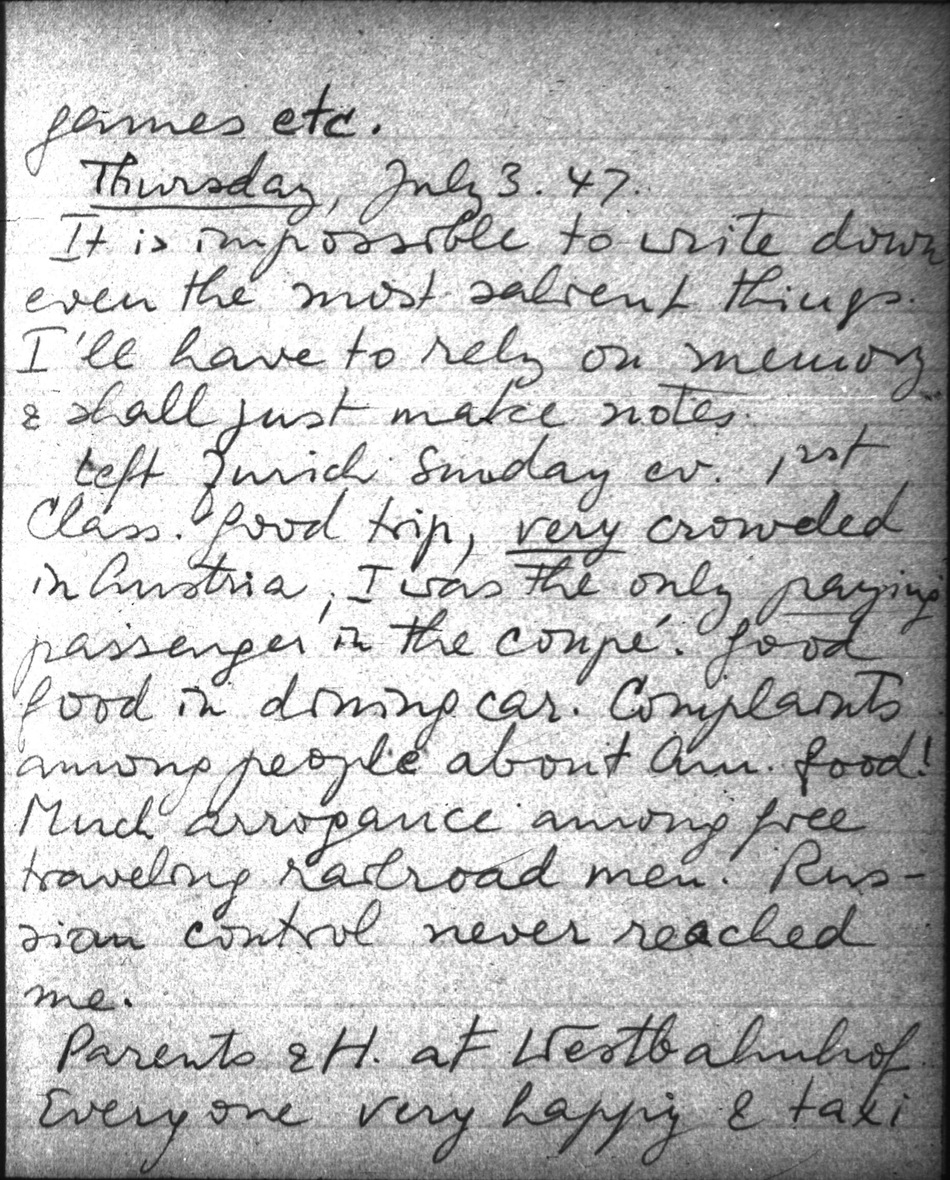 games etc.
Thursday, July 3. 47.
It is impossible to write down
even the most salient things.
I'll have to rely on memory
& shall just make notes.
Left Zurich Sunday ev. 1rst
Class. Good trip, very crowded
in Austria, I was the only paying
passenger in the coupé. Good
food in dining car. Complaints
among people about Am. food!
Much arrogance among free
traveling railroad men. Rus-
sian control never reached
me.
Parents & H. at Westbahnhof.
Everyone very happy & taxi